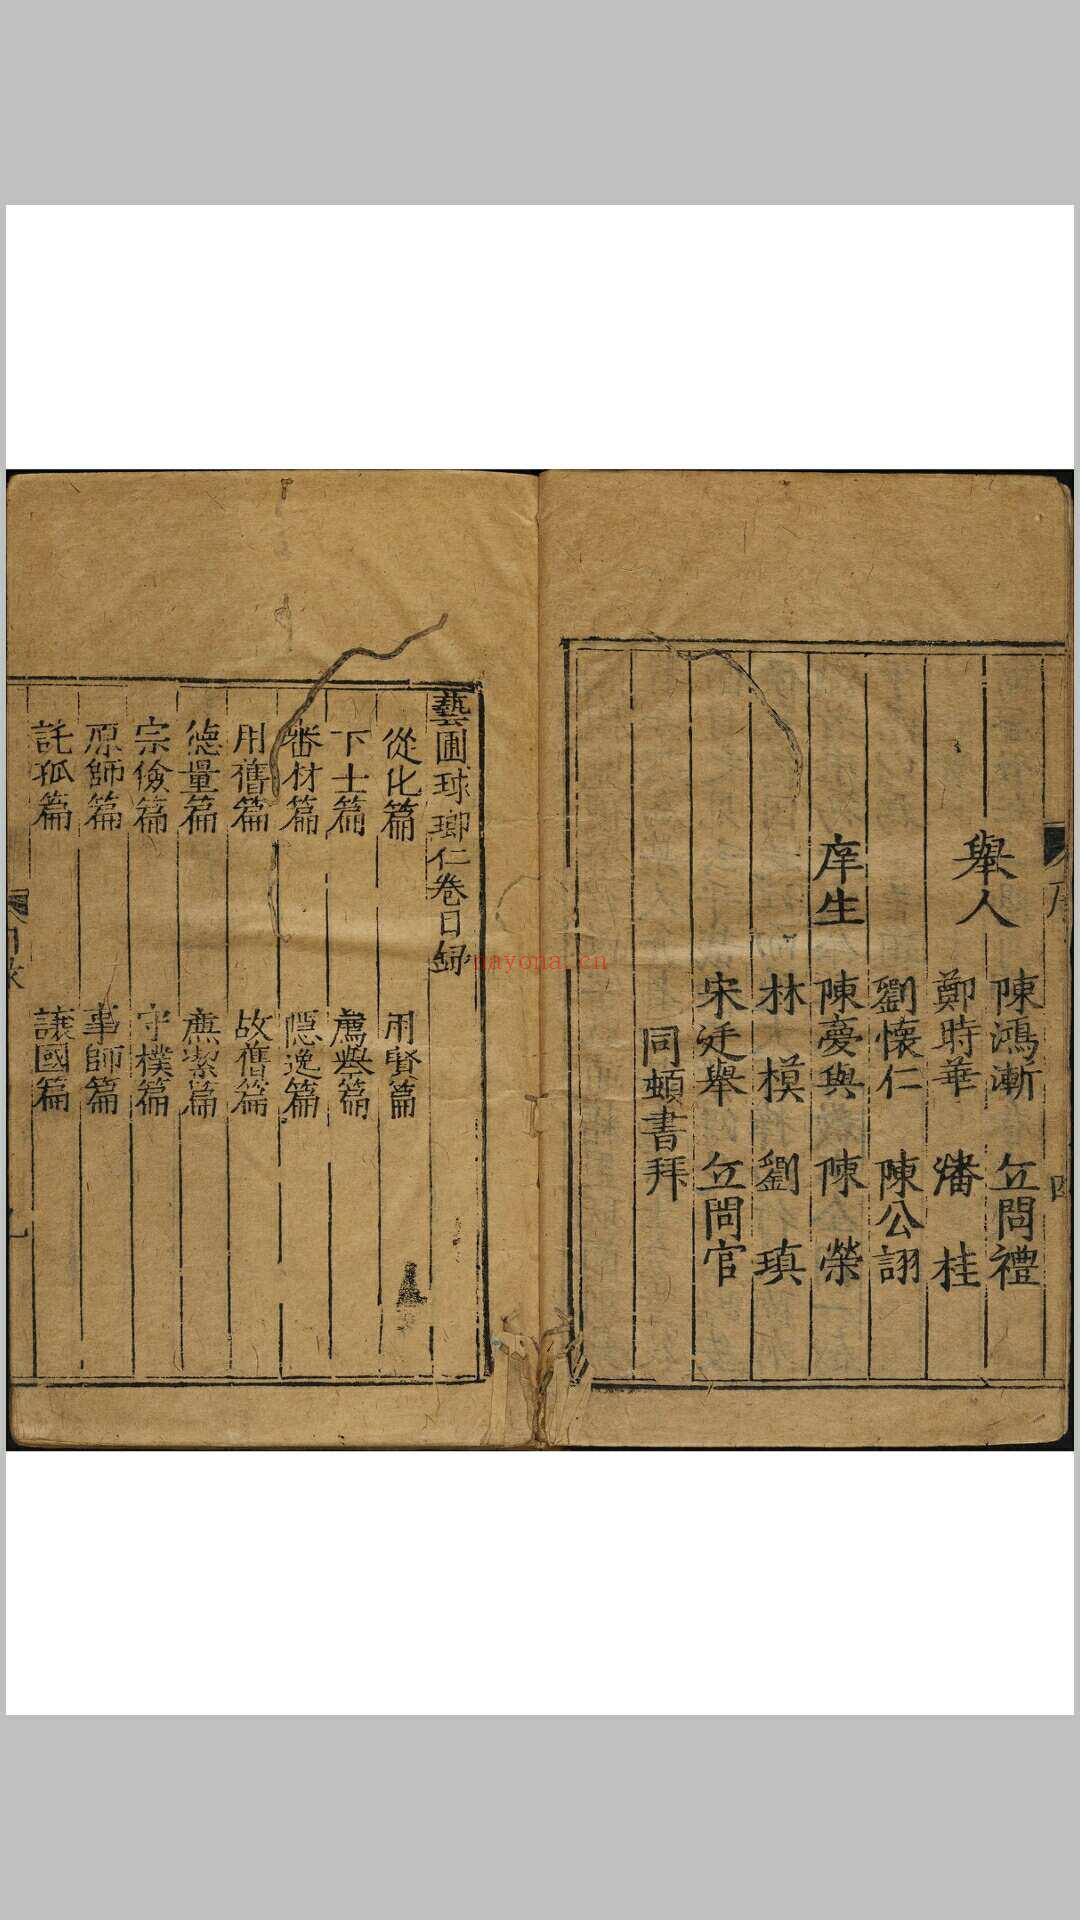 舉人
陳鴻漸 丘問禮
鄭時華 潘桂
劉懷仁 陳公詡
庠生
陳夢與 陳榮
林模 劉瑱
宋廷舉 丘問官
同頓書拜
藝圃球瑯仁卷目録
從化篇 用賢篇
下士篇 薦舉篇
審材篇 隱逸篇
用舊篇 故舊篇
德量篇 廉潔篇
宗儉篇 守樸篇
原師篇 事師篇
託孤篇 讓國篇
nayona.cn